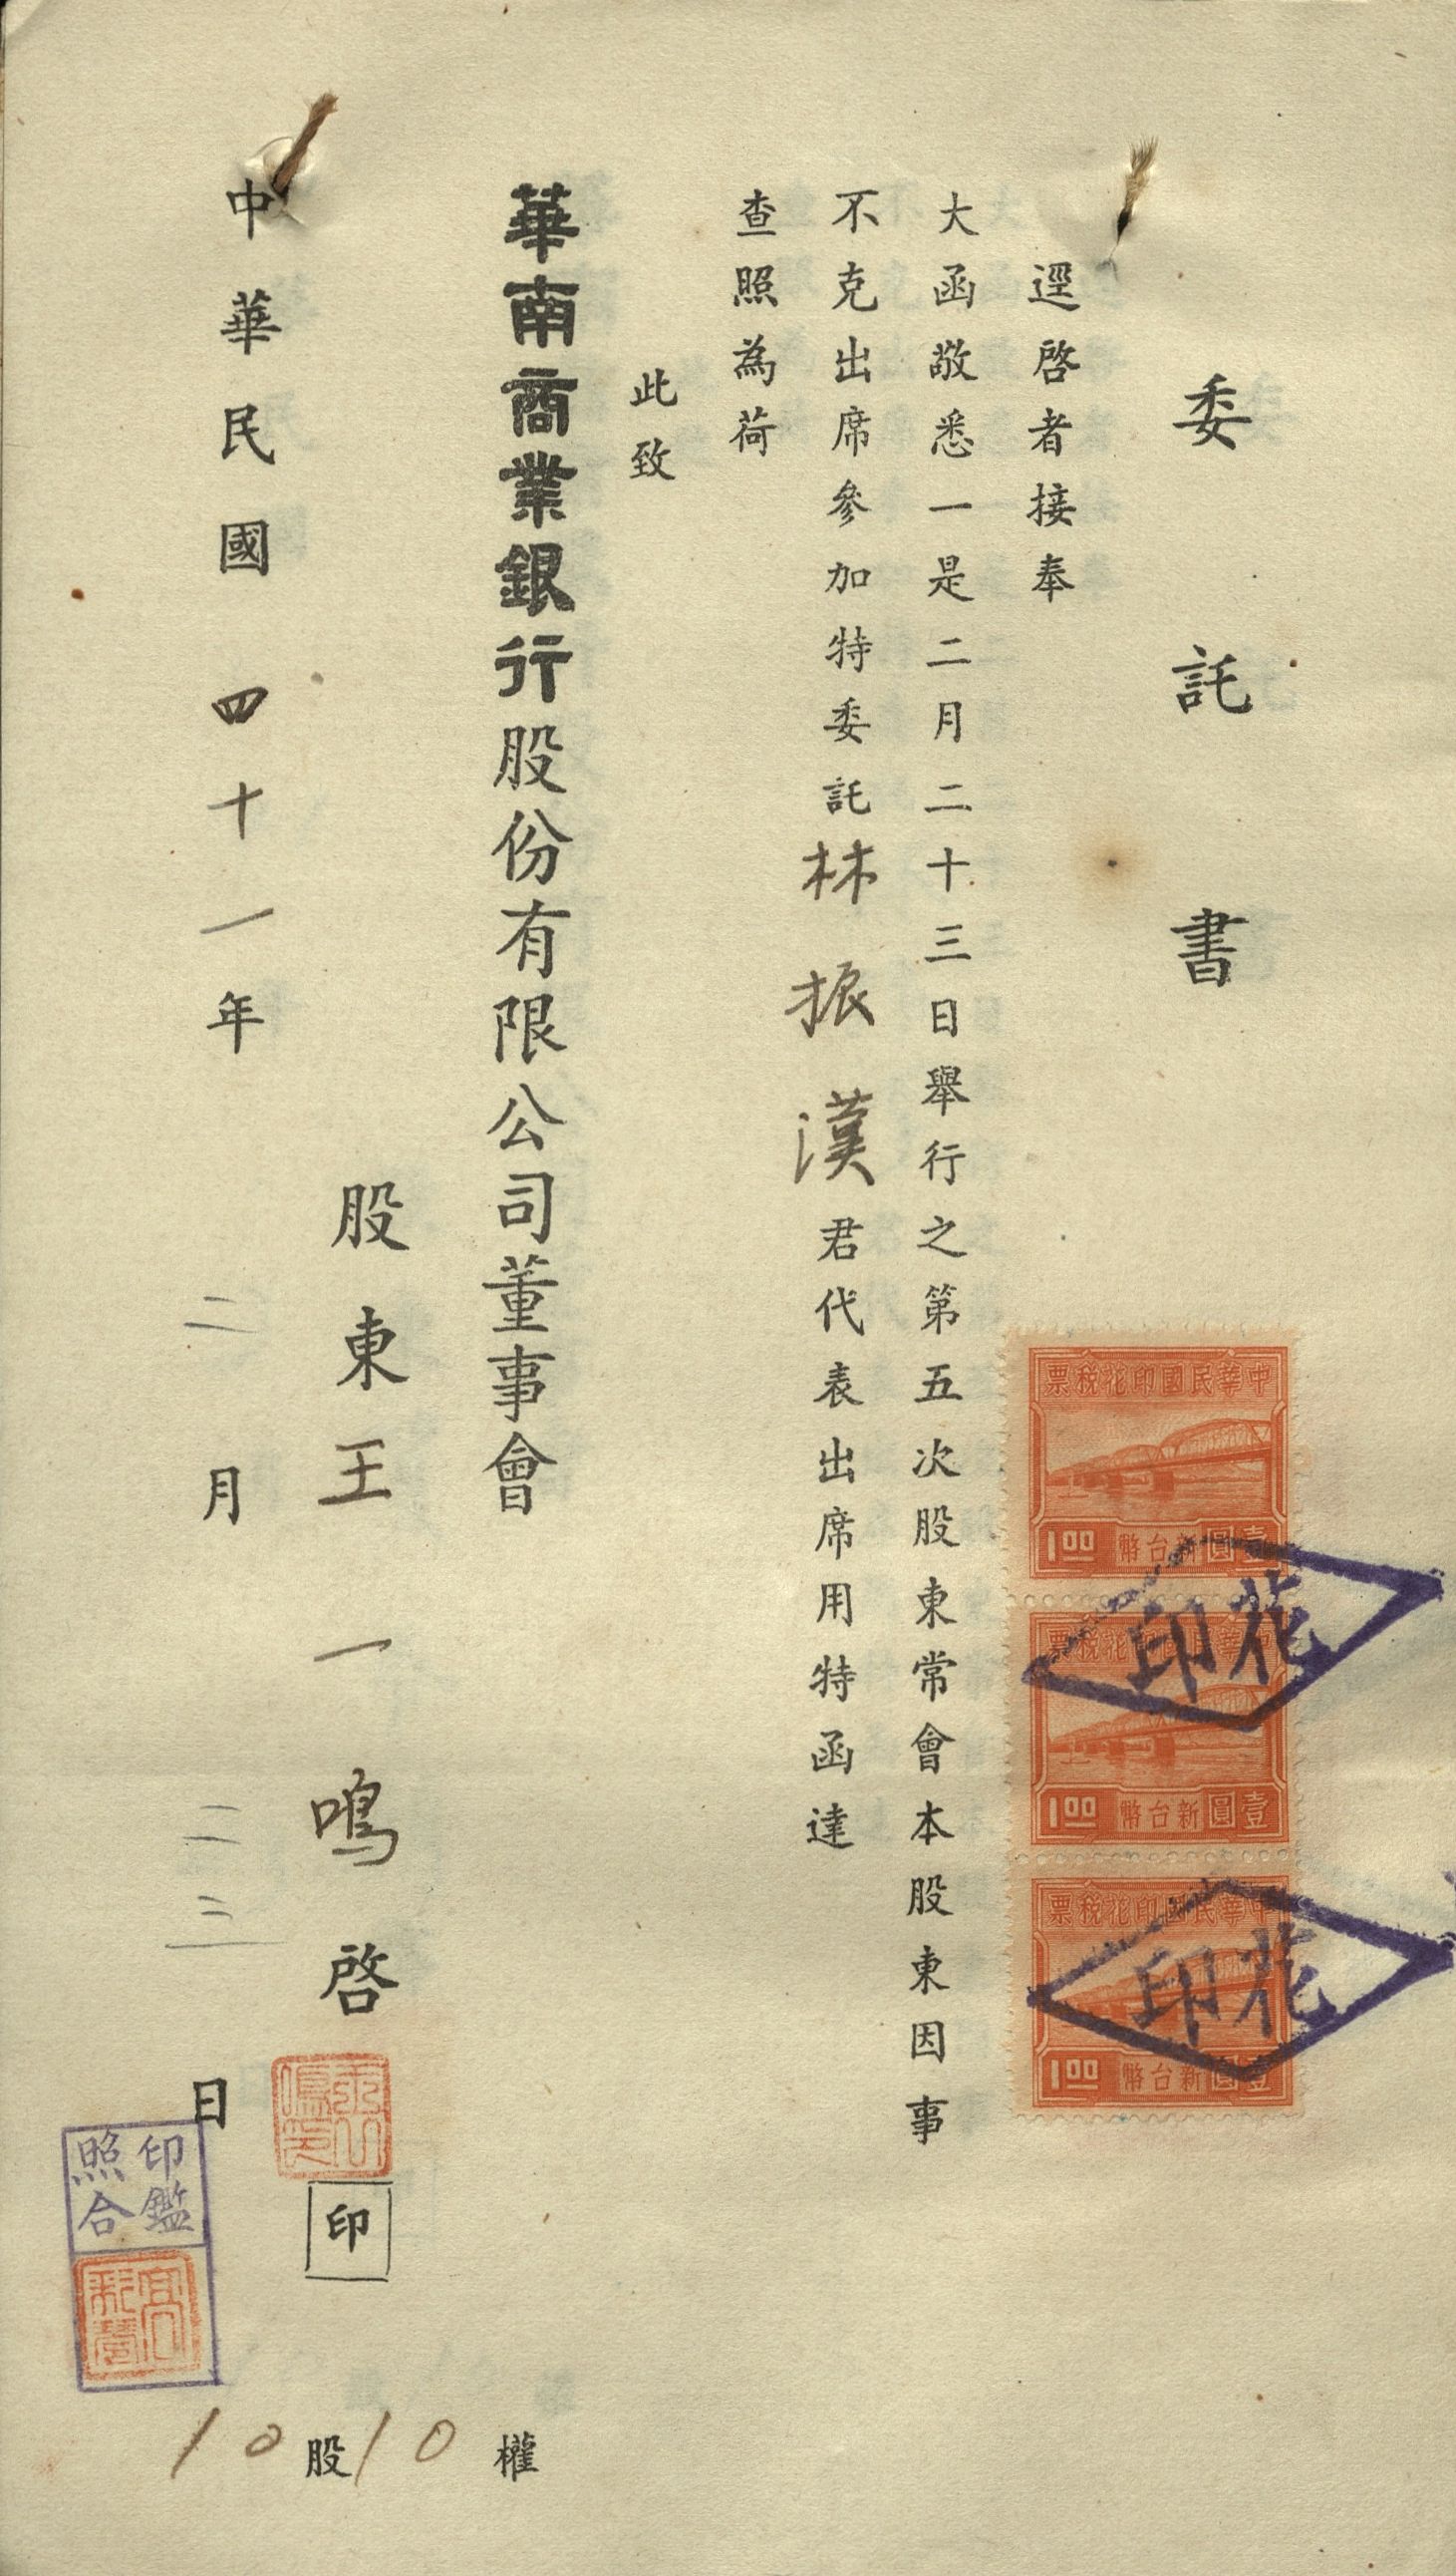 委託書
逕啓者接奉
大函敬悉一是二月二十三日舉行之第五次股東常會本股東因事
不克出席參加特委託林振漢君代表出席用特函達
查照為荷
此致
華南商業銀行股份有限公司董事會
股東王一鳴啓
印
中華民國四十一年二月二三日
10股10權
中華民國印花稅票
1.00
壹圓新台幣
中華民國印花稅票
1.00
壹圓新台幣
中華民國印花稅票
1.00
壹圓新台幣
花印
花印
印鑑
照合